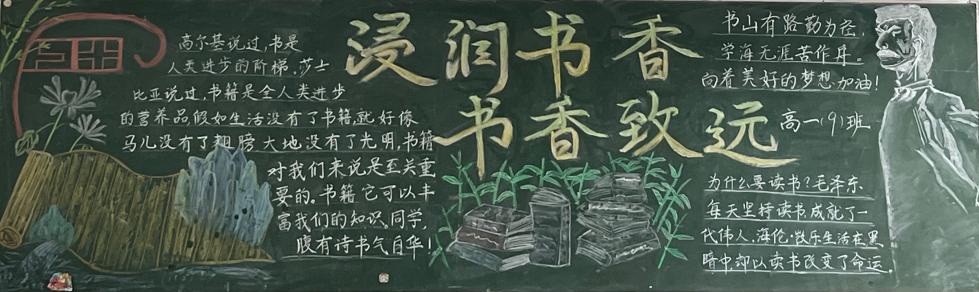 浸润书香
书香致远
高尔基说过,书是
人类进步的阶梯,莎士
比亚说过,书籍是全人类进步
的营养品假如生活没有了书籍,就好像
鸟儿没有了翅膀,大地没有了光明,书籍
对我们来说是至关重
要的。书籍它可以丰
富我们的知识,同学,
腹有诗书气自华!
书山有路勤为径,
学海无涯苦作舟。
向着美好的梦想加油!
高一(9)班
为什么要读书?毛泽东
每天坚持读书成就了一
代伟人,海伦·凯乐生活在黑
暗中却以读书改变了命运。